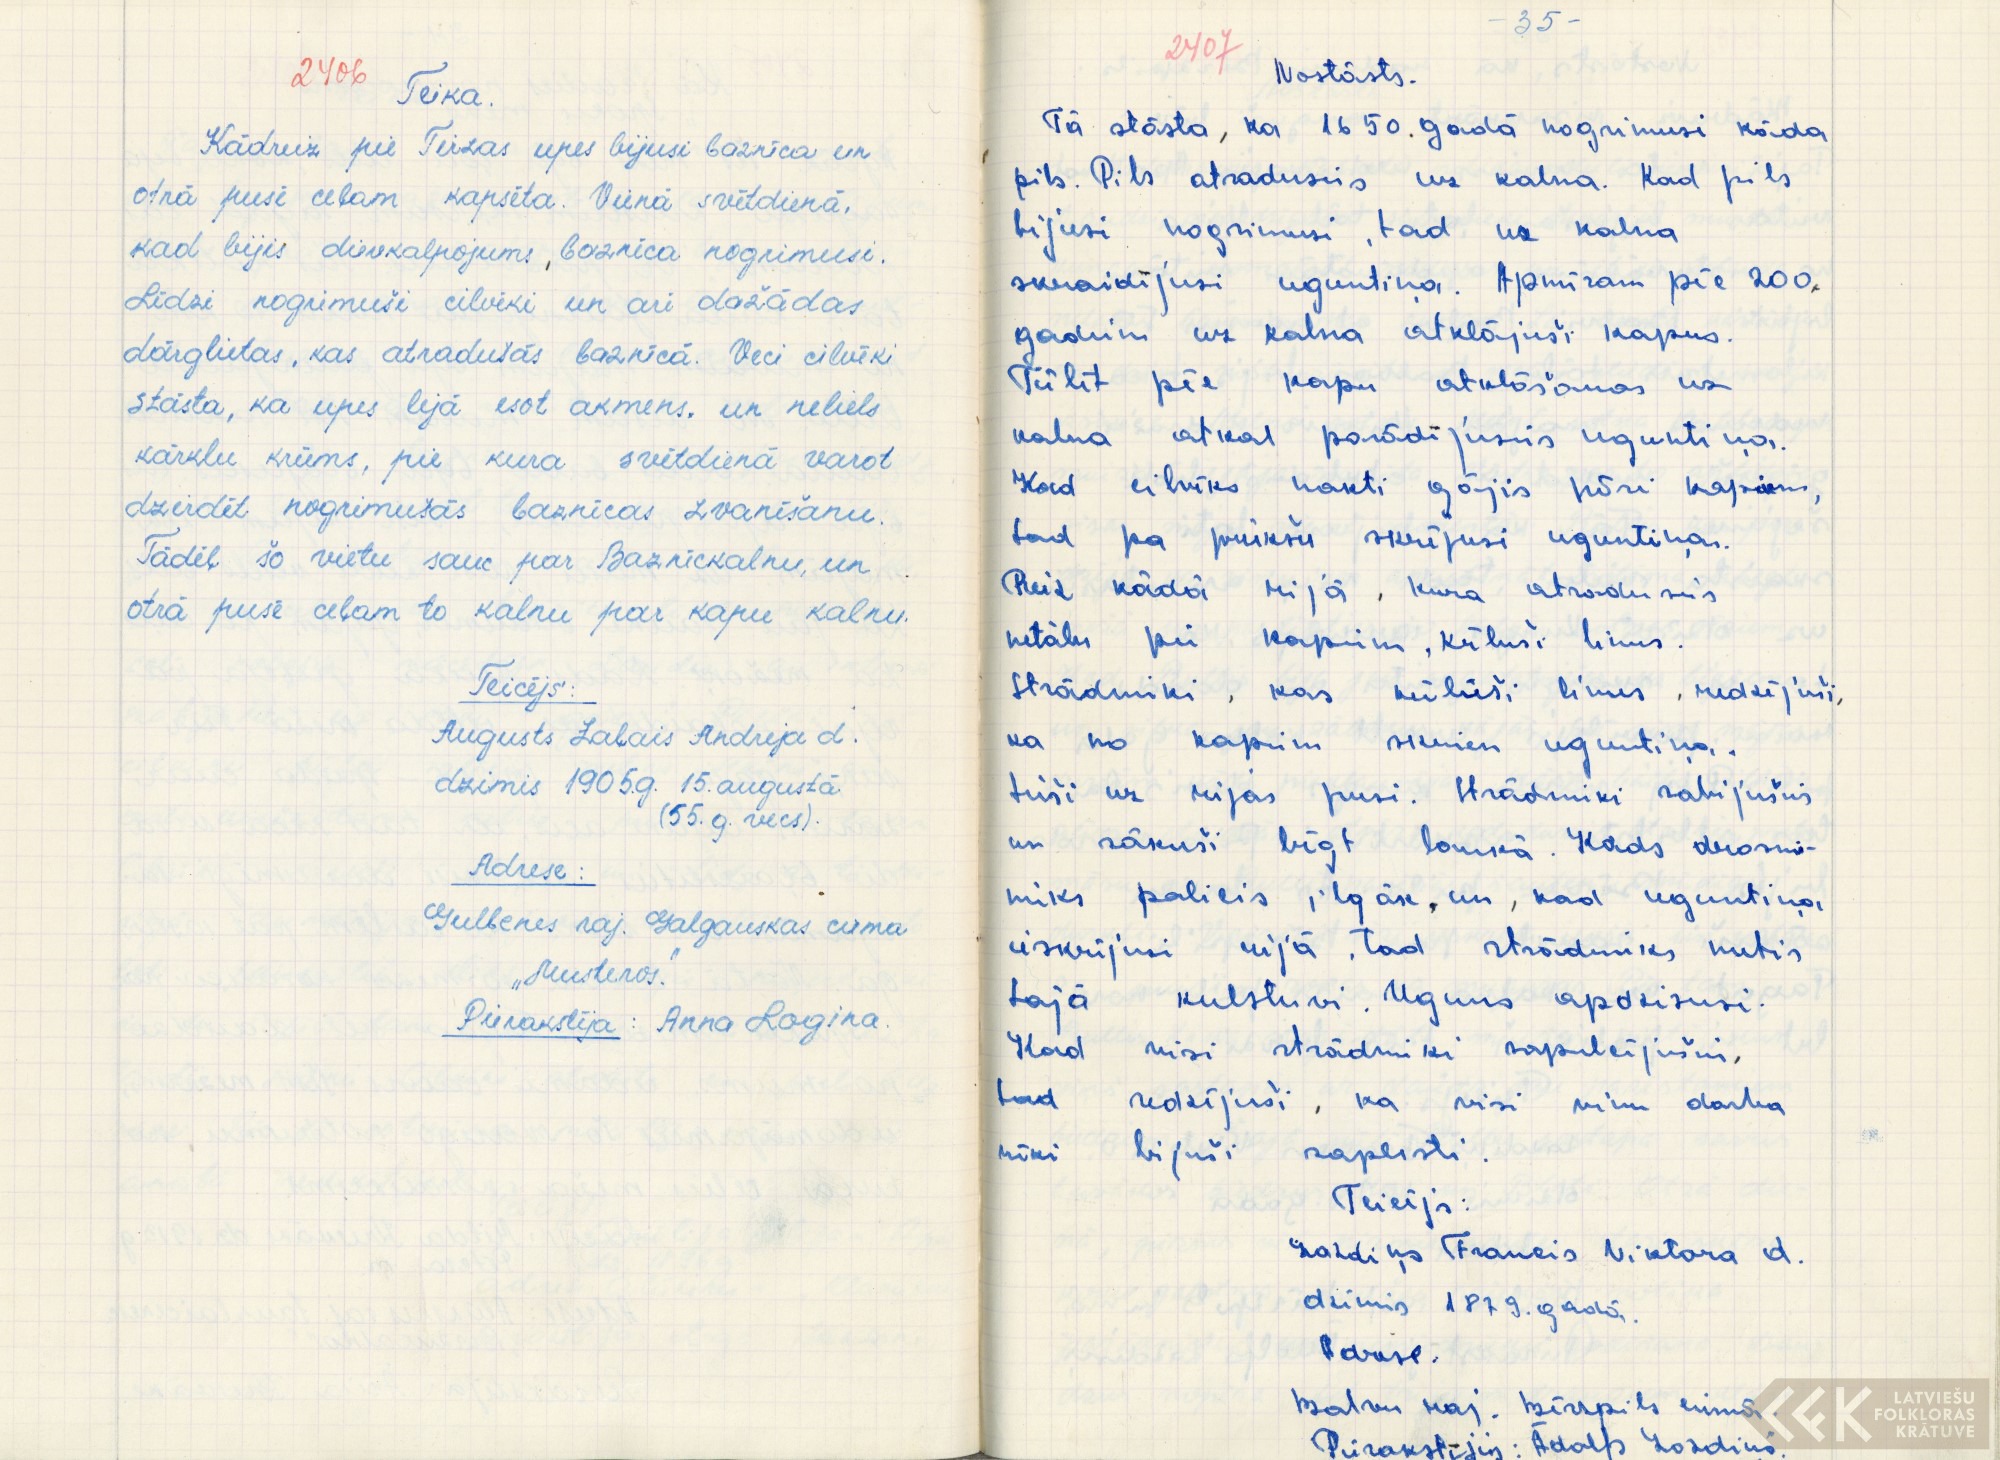 2406
Teika.
Kādreiz pie Tirzas upes bijusi baznīca un
otrā pusē ceļam kapsēta. Vienā svētdienā,
kad bijis dievkalpojums, baznīca nogrimusi.
Līdzi nogrimuši cilvēki un arī dažādas
dārglietas, kas atradušās baznīcā. Veci cilvēki
stāsta, ka upes lejā esot akmens, un neliels
kārklu krūms, pie kura svētdienā varot
dzirdēt nogrimušās baznīcas zvanīšanu.
Tādēļ šo vietu sauc par Baznīckalnu, un
otrā pusē ceļam to kalnu par kapu kalnu.
Teicējs:
Augusts Zaļais Andreja d.
dzimis 1905.g. 15. augustā
(55. g. vecs).
Adrese:
Gulbenes raj. Galgauskas ciema
„Musteros."
Pierakstīja: Anna Logina.
-35-
2407
Nostāsts.
Tā stāsta, ka 1650. gadā nogrimusi kāda
pils. Pils atradusies uz kalna. Kad pils
bijusi nogrimusi, tad uz kalna
skraidījusi uguntiņa. Apmēram pēc 200.
gadiem uz kalna atklājuši kapus.
Tūlīt pēc kapu atklāšanas uz
kalna atkal parādījusies uguntiņa.
Kad cilvēks naktī gājis pāri kapiem,
tad pa priekšu skrējusi uguntiņa.
Reiz kādā rijā, kura atradusies
netālu pie kapiem, kūluši linus.
Strādnieki, kas kūluši linus, redzējuši,
ka no kapiem skrien uguntiņa.
tieši uz rijas pusi. Strādnieki sabijušies
un sākuši bēgt laukā. Kāds drosmi-
nieks palicis ilgāk, un, kad uguntiņa
ieskrējusi rijā, tad strādnieks metis
tajā kulstuvi. Uguns apdzisusi.
Kad visi strādnieki sapulcējušies,
tad redzējuši, ka visi viņu darba
rīki bijuši saplēsti.
Teicējs:
Lazdiņš Francis Viktora d.
dzimis 1879. gadā.
Adrese.
Balvu raj. Bērzpils ciemā.
Pierakstījis: Ādolfs Lazdiņš.
LATVIEŠU
FOLKLORAS
KRĀTUVE